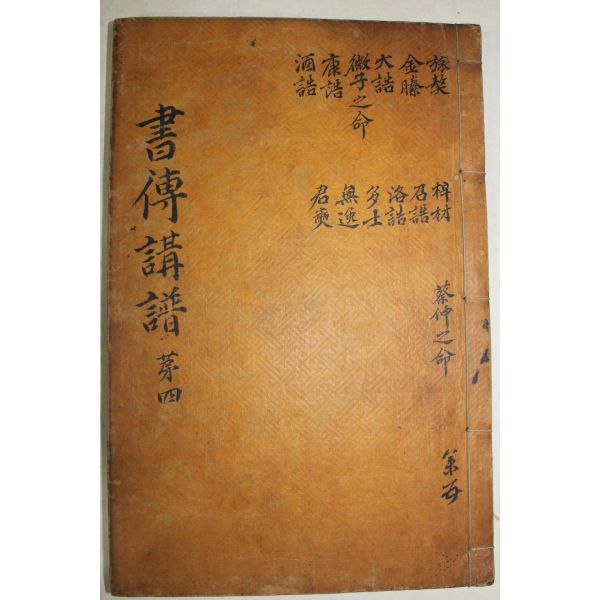 旅獒
金縢
大誥
微子之命
康誥
酒誥
梓材
召誥
洛誥
多士
無逸
君奭
蔡仲之命
書傳講譜 苐四